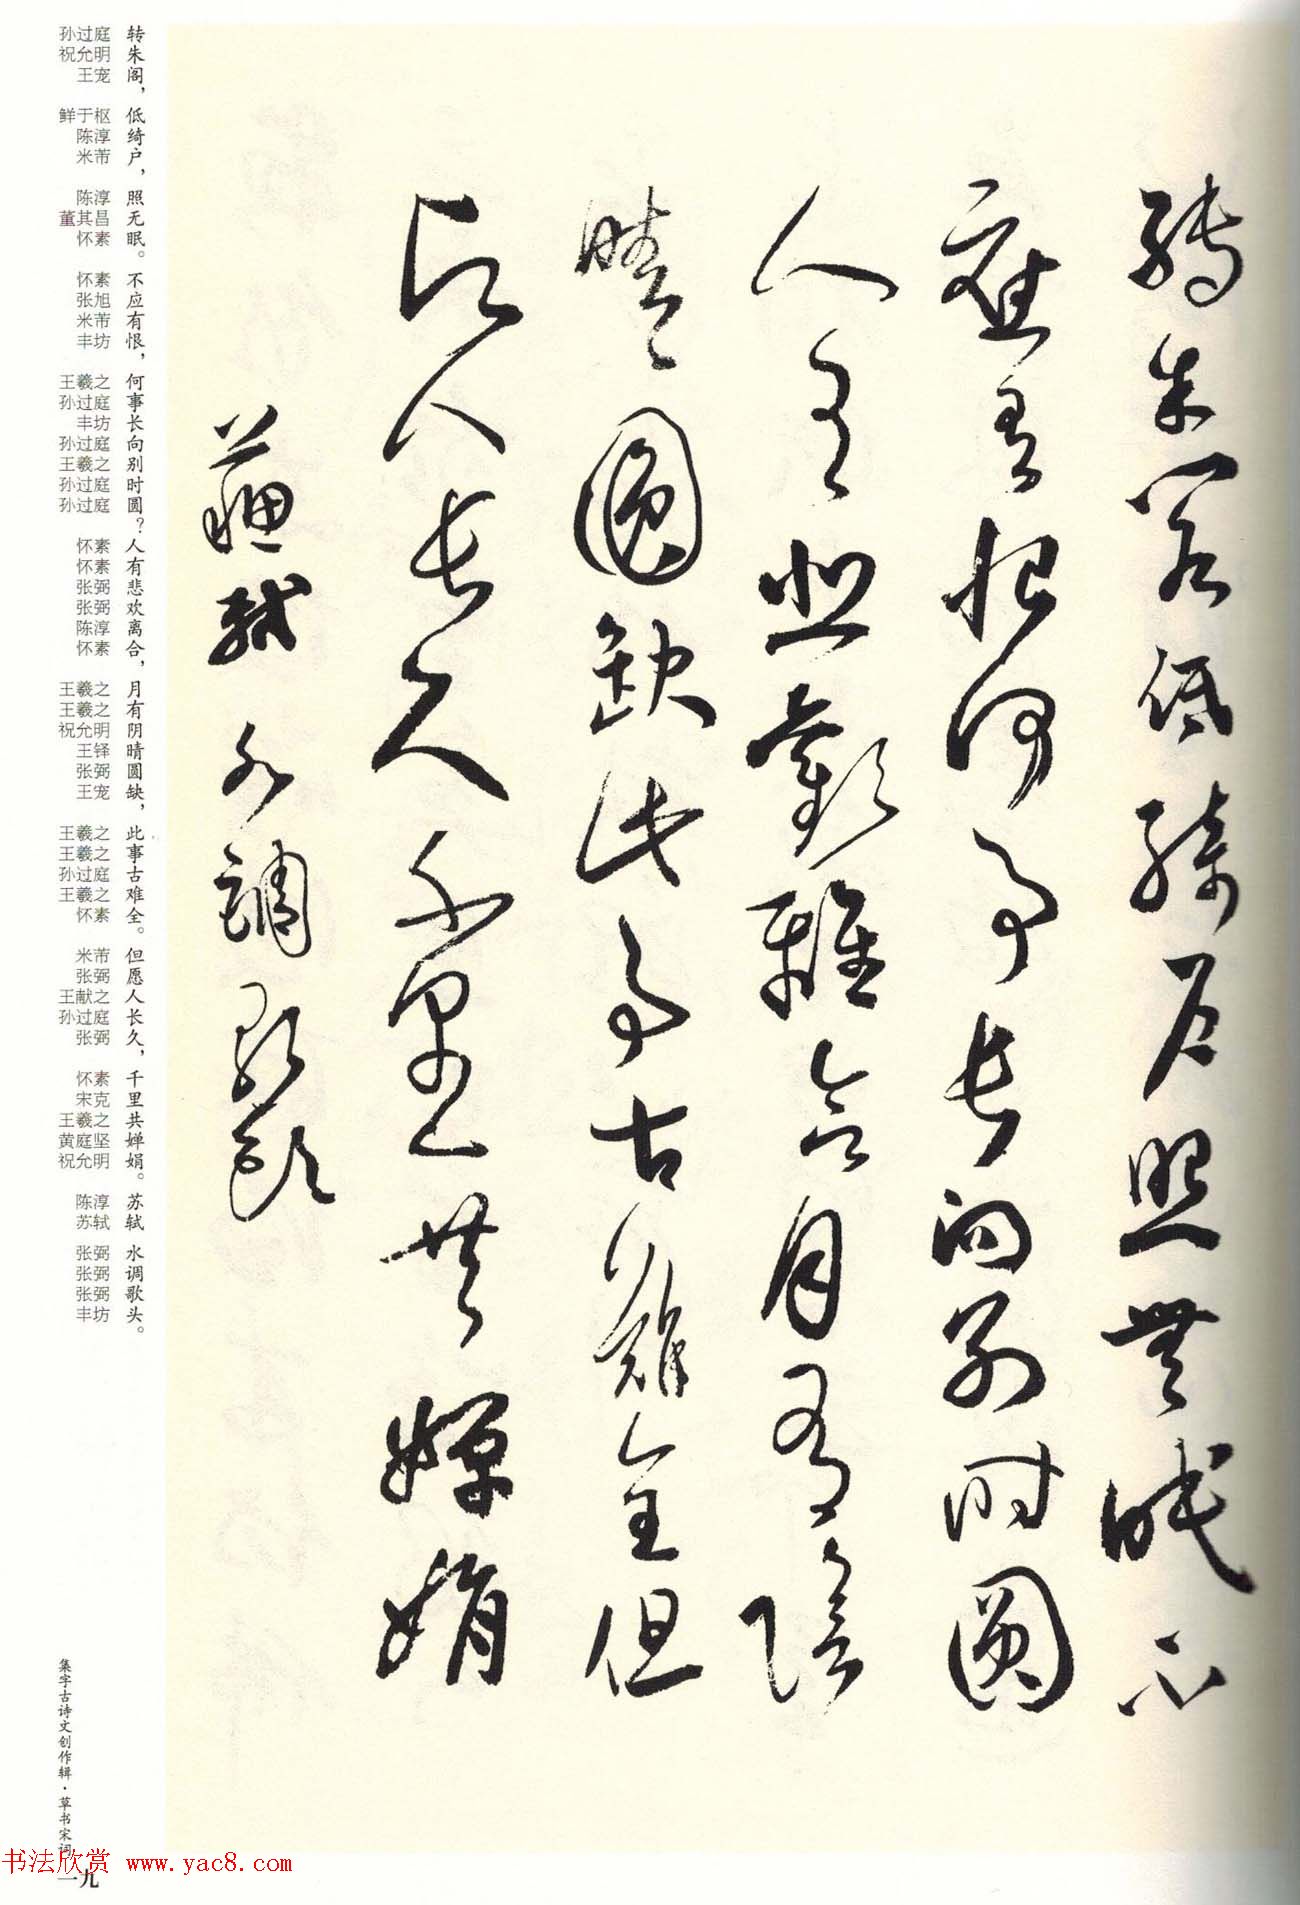 轉朱閣低綺户照無眠不
應有恨何事長向别時圓
人有悲歡離合月有陰
晴圓缺此事古難全但
願人長久千里共嬋娟
蘇軾水調歌頭
转朱阁，低绮户，照无眠。不应有恨，何事长向别时圆？人有悲欢离合，月有阴晴圆缺，此事古难全。但愿人长久，千里共婵娟。苏轼 水调歌头。
孙过庭 祝允明 王宠 鲜于枢 陈淳 米芾 陈淳 董其昌 怀素 怀素 张旭 米芾 丰坊 王羲之 孙过庭 丰坊 孙过庭 王羲之 孙过庭 孙过庭 怀素 怀素 张弼 张弼 陈淳 怀素 王羲之 王羲之 祝允明 王铎 张弼 王宠 王羲之 王羲之 孙过庭 王羲之 怀素 米芾 张弼 王献之 孙过庭 张弼 怀素 宋克 王羲之 黄庭坚 祝允明 陈淳 苏轼 张弼 张弼 张弼 丰坊
集字古诗文创作辑·草书宋词
书法欣赏 www.yac8.com
一九